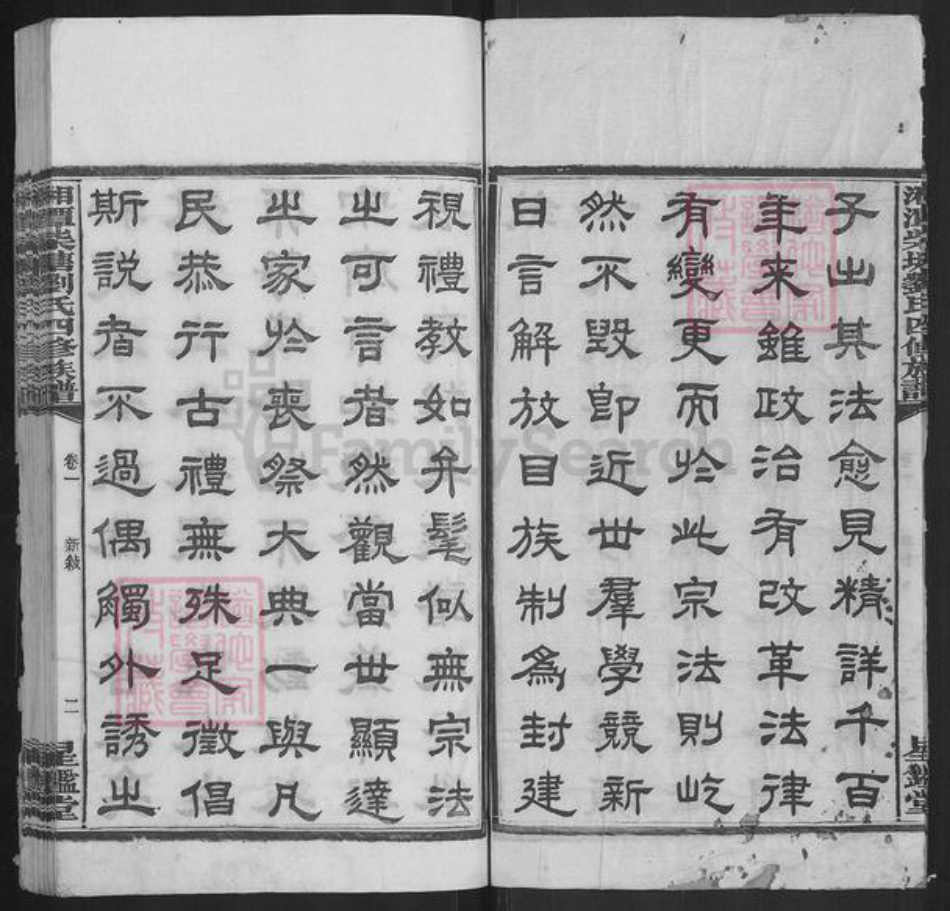 子㞢其法愈見精詳千百
年来雖政治有改革法律
有變更而於此宗法則屹
然不毀卽近世羣學競新
日言解放目族制為封建
視禮教如弁髦似無宗法
㞢可言者然觀當世顯達
㞢家於喪祭大典一與凡
民恭行古禮無殊足徵倡
斯說者不過偶觸外誘㞢
湘潭柴塘劉氏四修族譜
卷一
新敍
二
星鑑堂
FamilySearch